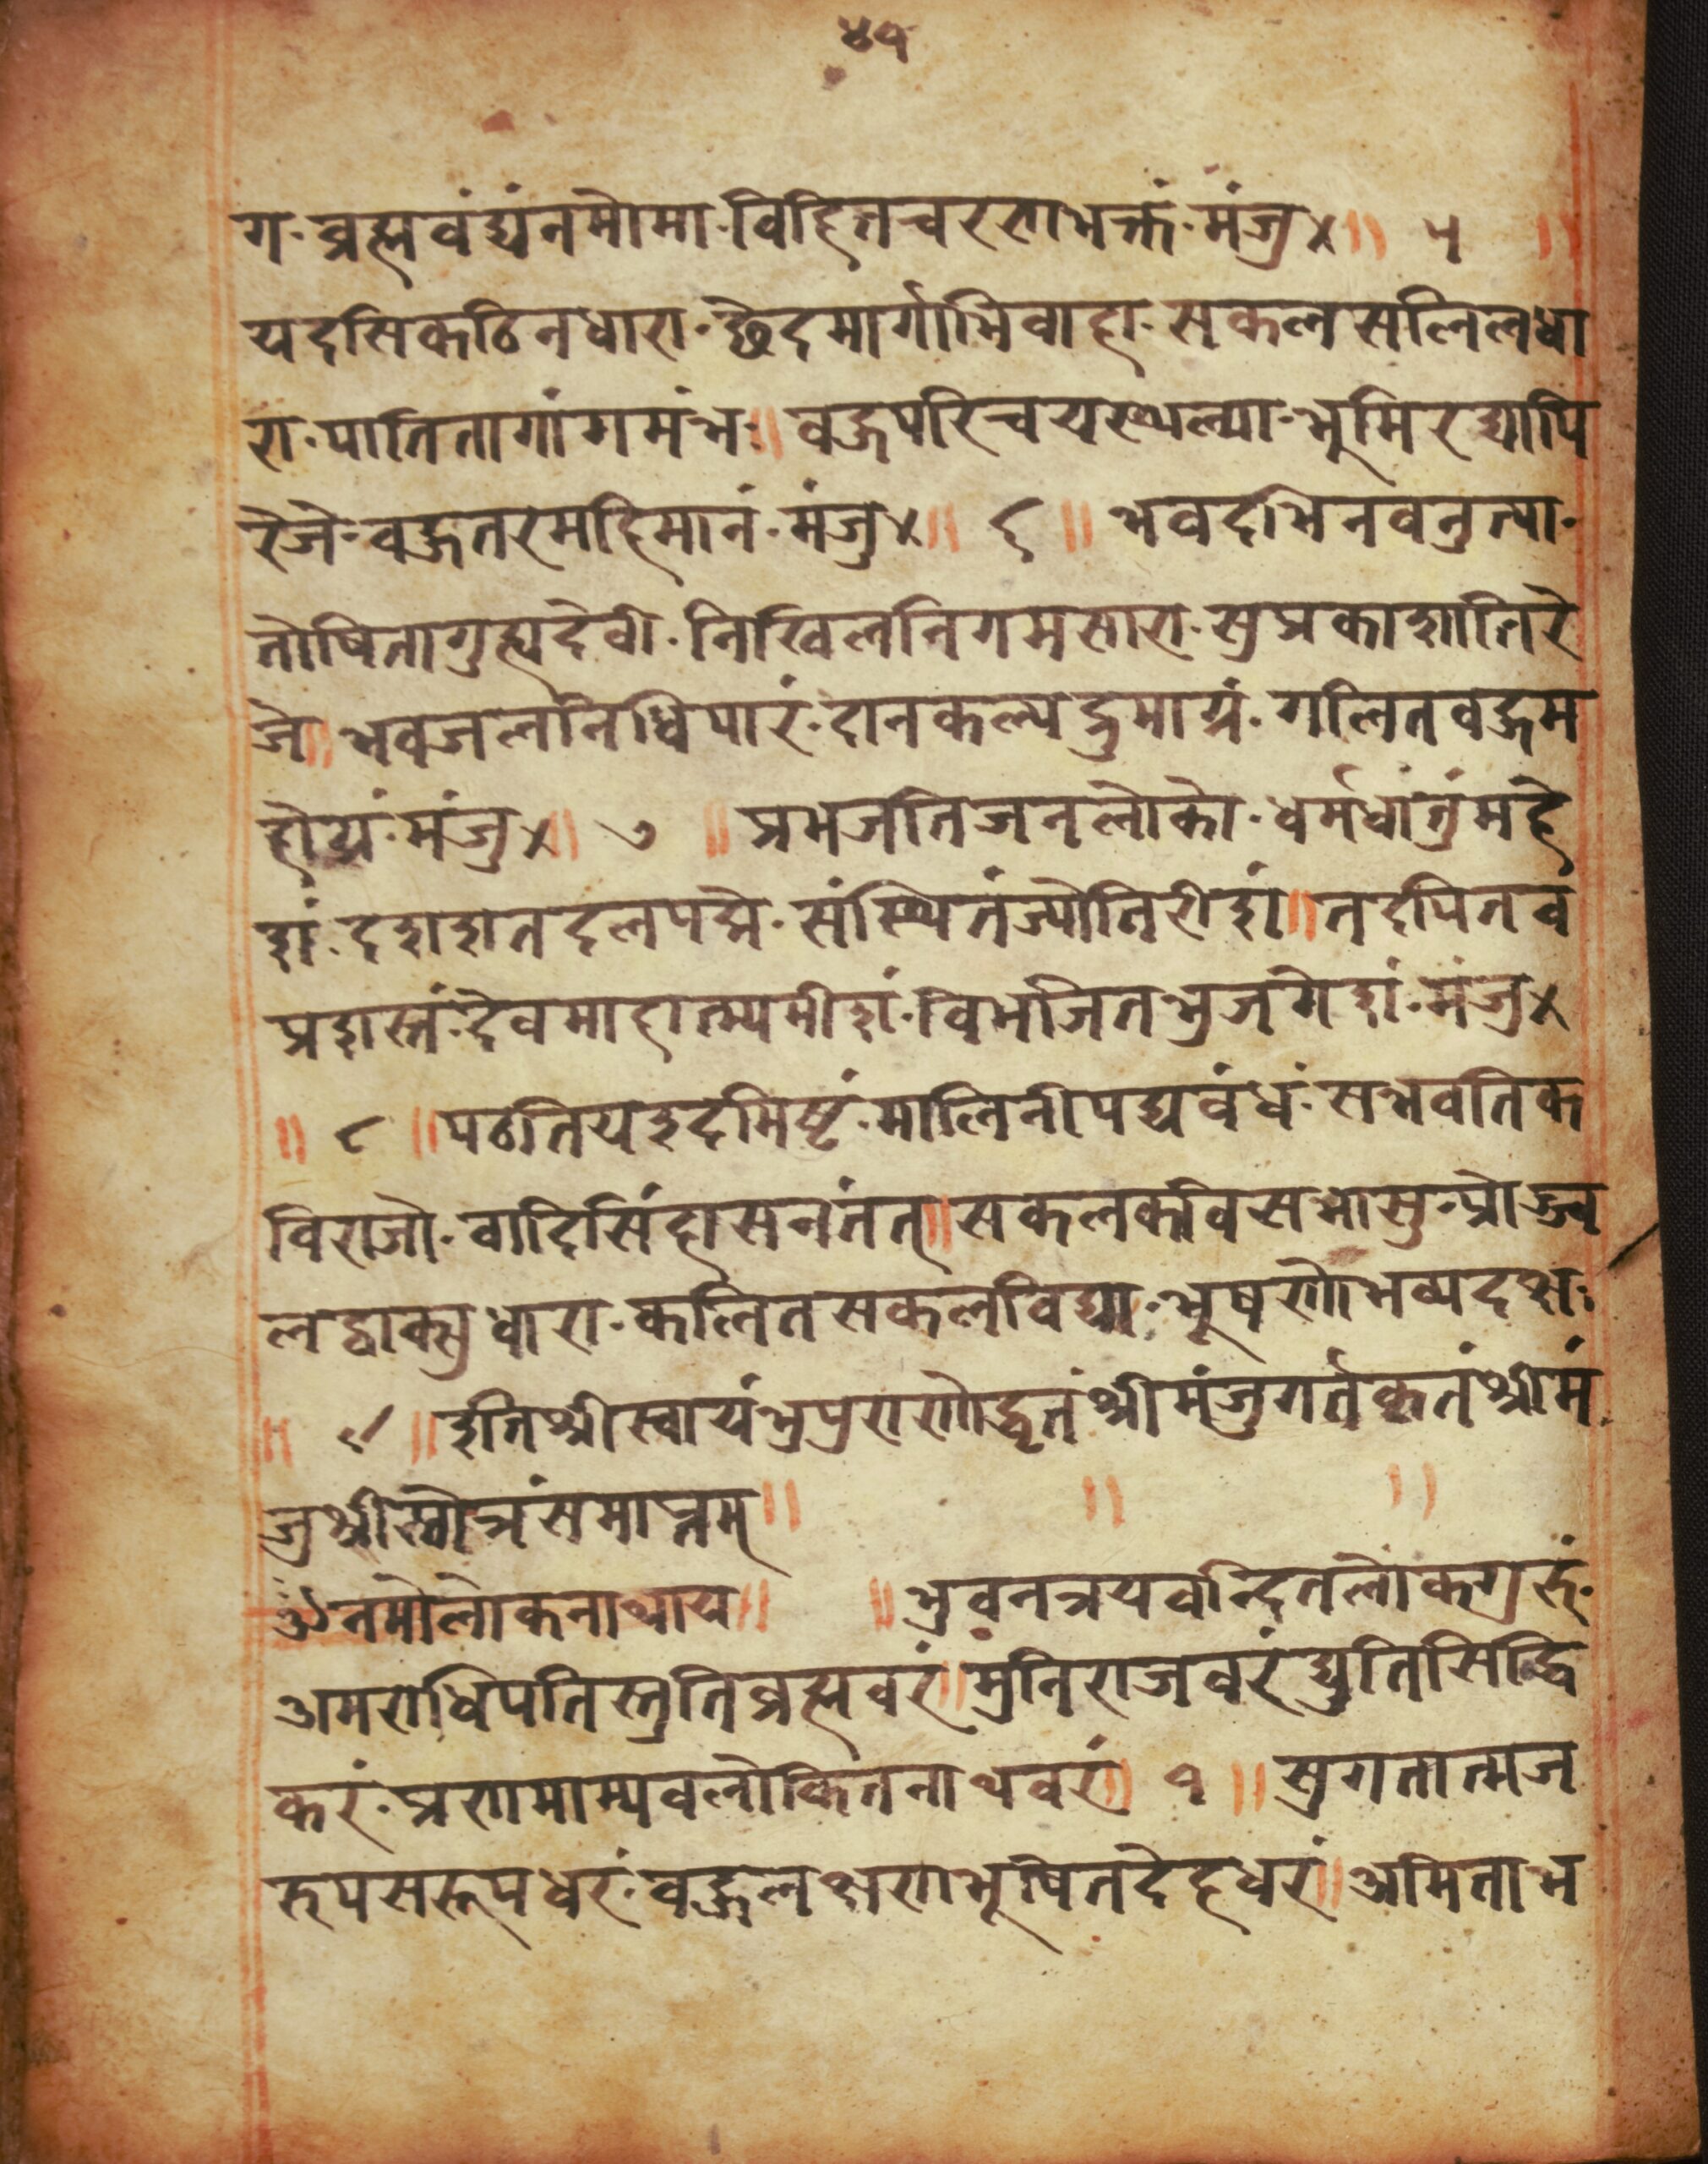 ४१
ग·ब्रह्मवंद्यंनमोमा·विहितचरणाभक्तं·मंजु४॥ ५ ॥
यदसिकठिनधारा·छेदमार्गाभिवाहा·सकलसलिलधा
रा·पातितागांगमंभः॥ वहुपरिचयस्थल्या·भूमिरद्यापि
रेजे·वहुतरमहिमानं·मंजु४॥ ६ ॥ भवदभिनवनुत्या·
तोषितागुह्यदेवी·निखिलनिगमसारा·सुप्रकाशातिरे
जे॥ भवजलनिधिपारं·दानकल्पद्रुमाग्रं·गलितवहुम
होयं·मंजु४॥ ७ ॥ प्रभजतिजनलोको·धर्मधातुंमहे
शं·दशशतदलपद्मे·संस्थितंज्योतिरीशं॥ तदपितव
प्रशस्तं·देवमाहात्म्यमीशं·विभजितभुजगेशं·मंजु४
॥ ८ ॥ पठतियइदमिष्टं·मालिनीपद्यवंधं·सभवतिक
विराजो·वादिसिंहासनंतत्॥ सकलकविसभासु·प्रोज्व
लद्वाक्सुधारा·कलितसकलविद्या·भूषणोभव्यदक्षः
॥ ९ ॥ इतिश्रीस्वायंभुपुराणोद्धृतंश्रीमंजुगर्तकृतंश्रीमं
जुश्रीस्तोत्रंसमाप्तम्॥ ॥ ॥
ॐनमोलोकनाथाय॥ ॥ भुवनत्रयवन्दितलोकगुरुं·
अमराधिपतिस्तुतिब्रह्मवरं॥ मुनिराजवरंद्युतिसिद्धि
करं·प्रणमाम्यवलोकितनाथवरं॥ १ ॥ सुगतात्मज
रुपसरूपधरं·वहुलक्षणभूषितदेहधरं॥ अमिताभ